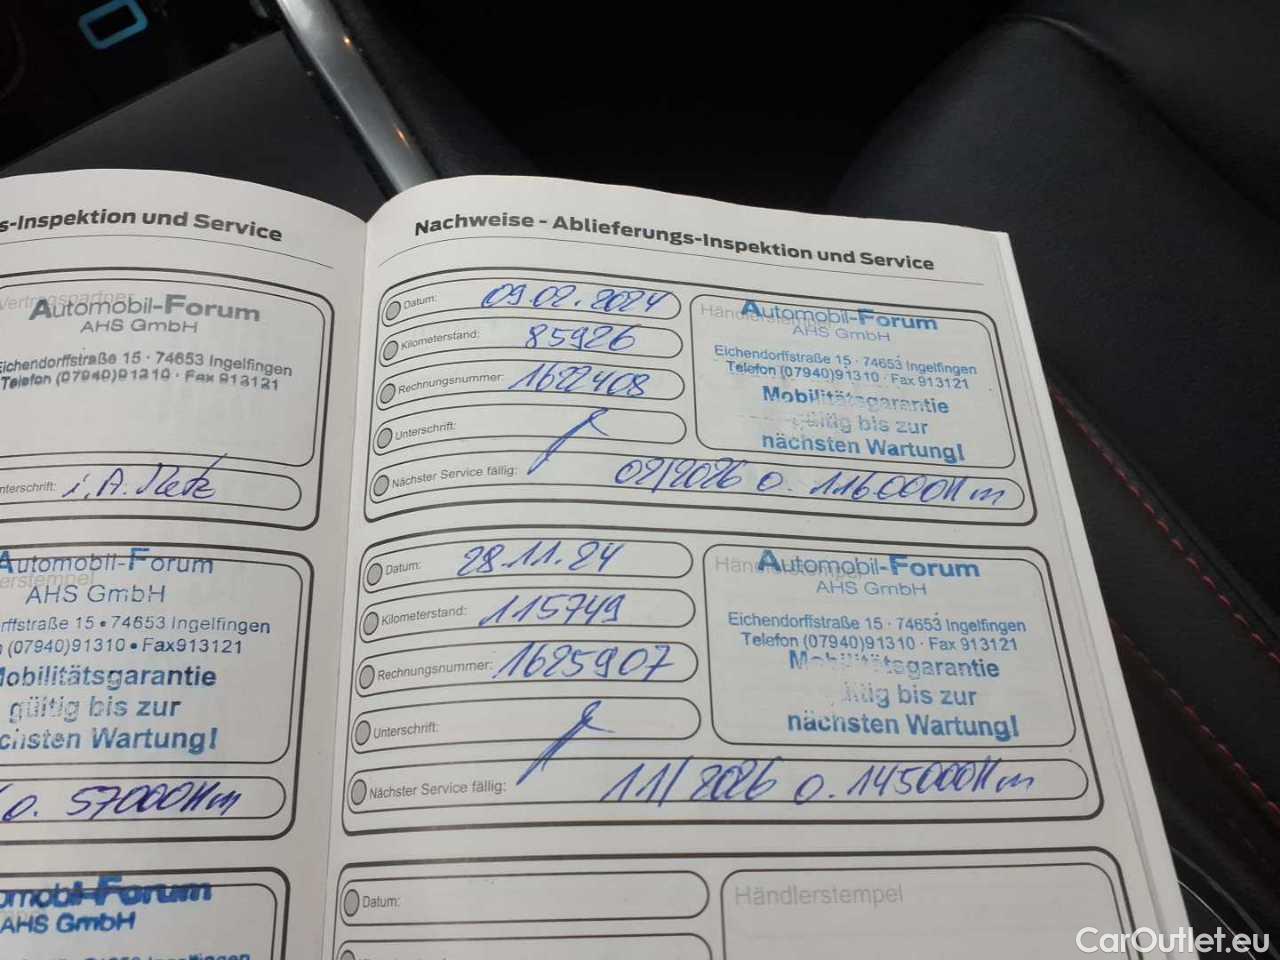 s-Inspektion und Service
Vertragspartner
Automobil-Forum
AHS GmbH
Eichendorffstraße 15 · 74653 Ingelfingen
Telefon (07940)91310 · Fax 913121
nterschrift: i.A. Metz
Automobil-Forum
erstempel
AHS GmbH
rffstraße 15 • 74653 Ingelfingen
(07940)91310 • Fax 913121
Mobilitätsgarantie
gültig bis zur
chsten Wartung!
o. 57000 Km
omobil-Forum
AHS GmbH
Nachweise - Ablieferungs-Inspektion und Service
Datum: 09.02.2024
Kilometerstand: 85926
Rechnungsnummer: 1622408
Unterschrift:
Nächster Service fällig: 02/2026 o. 116000 Km
Händlerstempel
Automobil-Forum
AHS GmbH
Eichendorffstraße 15 · 74653 Ingelfingen
Telefon (07940)91310 · Fax 913121
Mobilitätsgarantie
gültig bis zur
nächsten Wartung!
Datum: 28.11.24
Kilometerstand: 115749
Rechnungsnummer: 1625907
Unterschrift:
Nächster Service fällig: 11/2026 o. 145000 Km
Händlerstempel
Automobil-Forum
AHS GmbH
Eichendorffstraße 15 · 74653 Ingelfingen
Telefon (07940)91310 · Fax 913121
Mobilitätsgarantie
ültig bis zur
nächsten Wartung!
Datum:
Händlerstempel
CarOutlet.eu